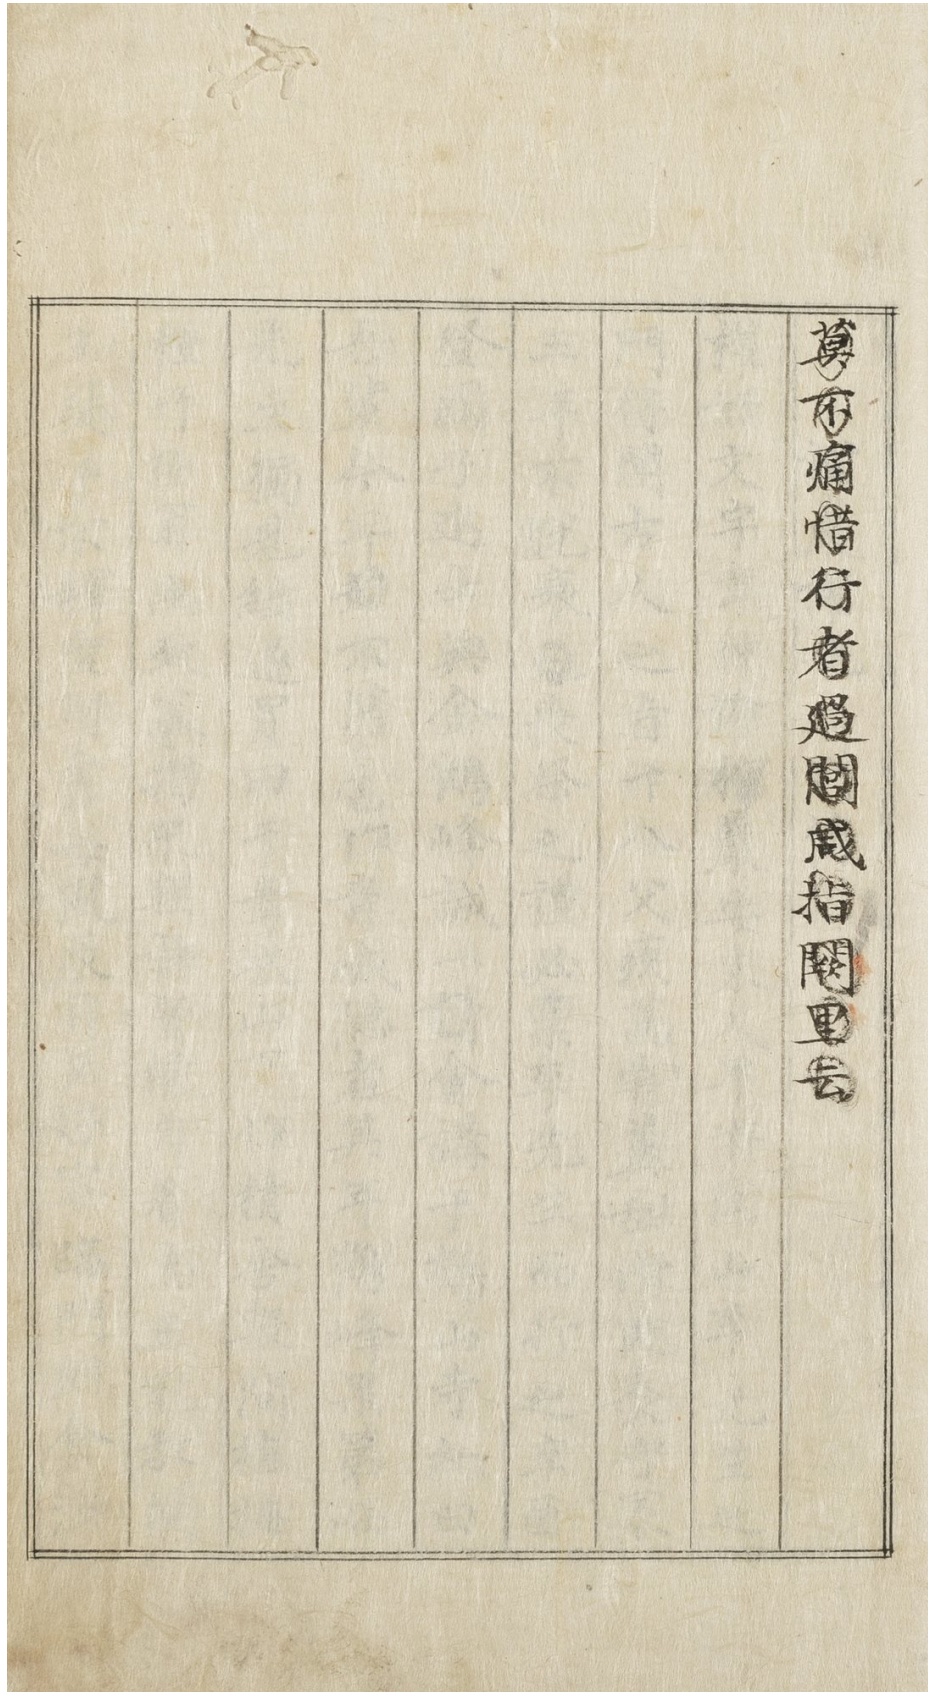 莫不痛惜行者過閭咸指闕里云